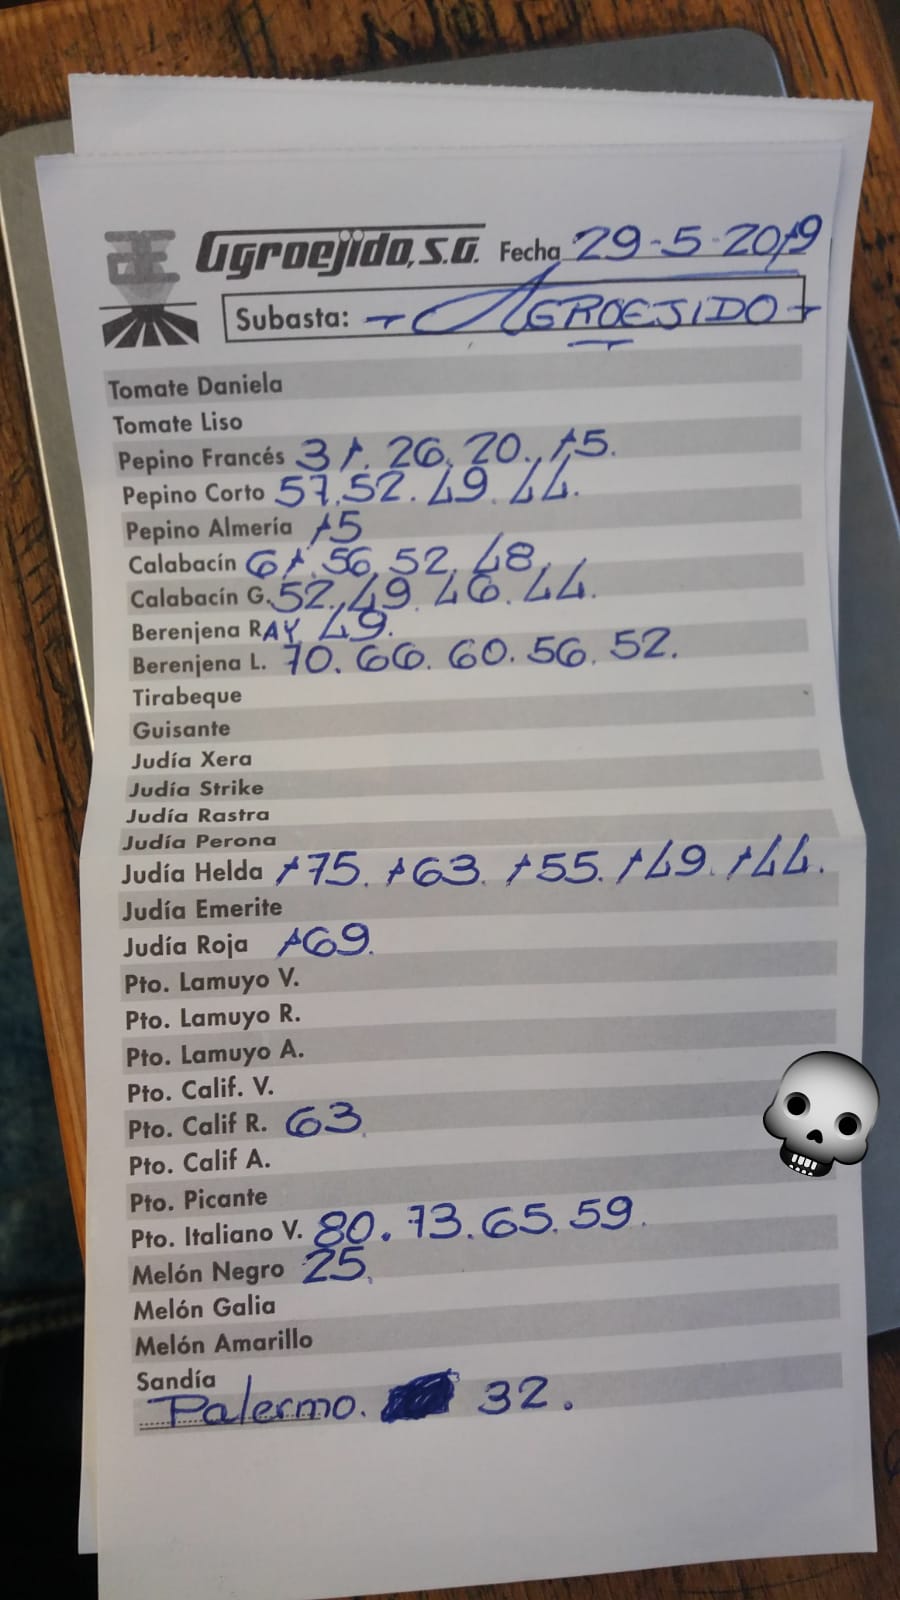 Agroejido, S.A. Fecha 29-5-2019
Subasta: - AGROEJIDO -
Tomate Daniela
Tomate Liso
Pepino Francés 31. 26. 20. 15.
Pepino Corto 57. 52. 49. 44.
Pepino Almería 15
Calabacín 61. 56. 52. 48.
Calabacín G. 52. 49. 46. 44.
Berenjena RAY 49.
Berenjena L. 70. 66. 60. 56. 52.
Tirabeque
Guisante
Judía Xera
Judía Strike
Judía Rastra
Judía Perona
Judía Helda 175. 163. 155. 149. 144.
Judía Emerite
Judía Roja 169.
Pto. Lamuyo V.
Pto. Lamuyo R.
Pto. Lamuyo A.
Pto. Calif. V.
Pto. Calif R. 63.
Pto. Calif A.
Pto. Picante
Pto. Italiano V. 80. 73. 65. 59.
Melón Negro 25.
Melón Galia
Melón Amarillo
Sandía
Palermo. 32.